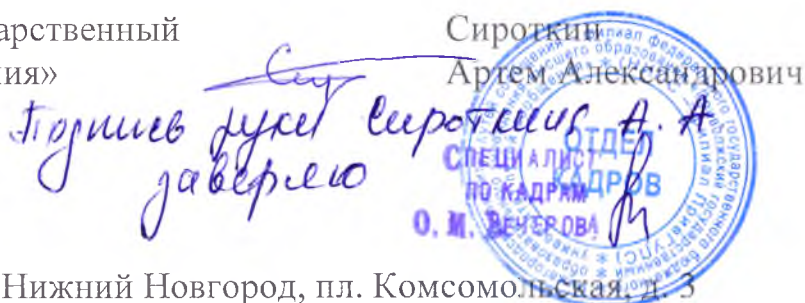 арственный
ния»
Сироткин
Артем Александрович
Подпись руки Сироткина А. А
заверяю
ОТДЕЛ
КАДРОВ
СПЕЦИАЛИСТ
ПО КАДРАМ
О. М. ВЕЧЕРОВА
Нижний Новгород, пл. Комсомольская, д. 3